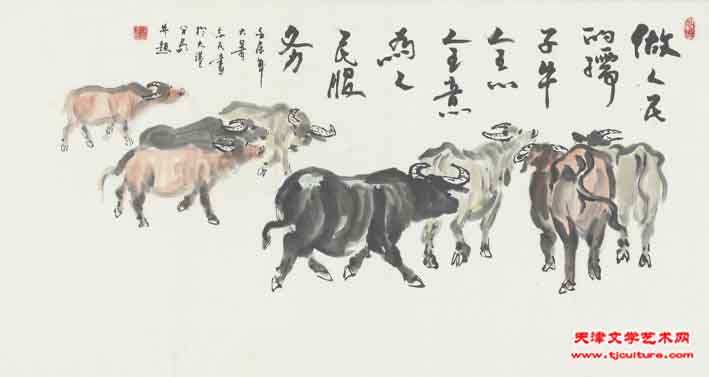 做人民
的孺
子牛
全心
全意
為人
民服
务
辰年
大暑
於大港
并題
天津文学艺术网
www.tjculture.com